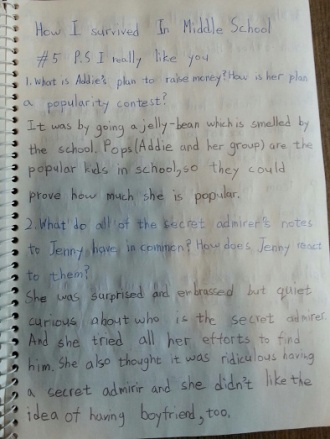 How I survived In Middle School
#5 P.S I really like you
1. What is Addie's plan to raise money? How is her plan
a popularity contest?
It was by going a jelly-bean which is smelled by
the school. Pops (Addie and her group) are the
popular kids in school, so they could
prove how much she is popular.
2. What do all of the secret admirer's notes
to Jenny have in common? How does Jenny react
to them?
She was surprised and embrassed but quiet
curious about who is the secret admirer.
And she tried all her efforts to find
him. She also thought it was ridiculous having
a secret admirir and she didn't like the
idea of having boyfriend, too.